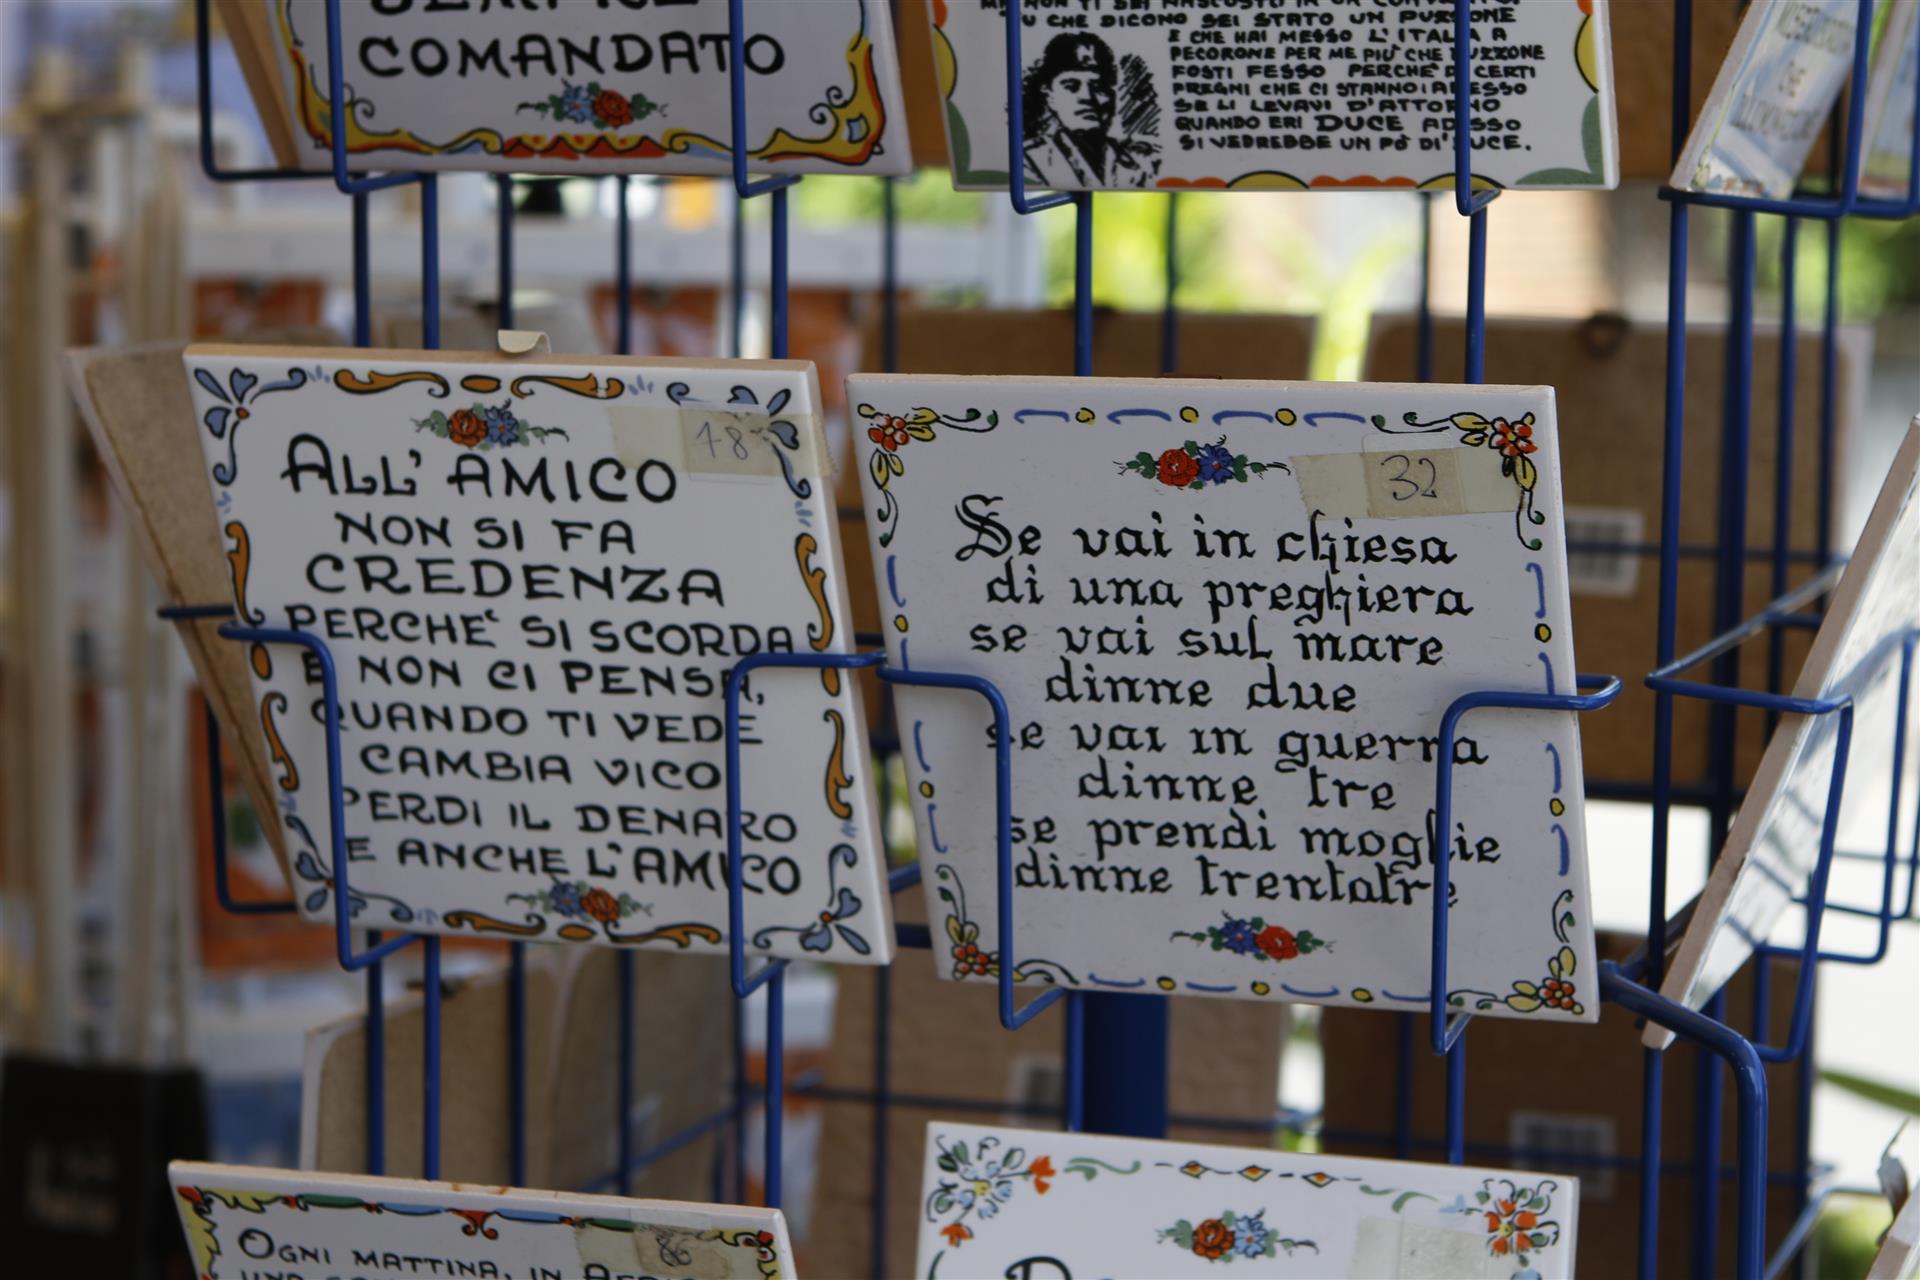 COMANDATO
TU CHE DICONO SEI STATO UN PUZZONE
E CHE HAI MESSO L'ITALIA A
PECORONE PER ME PIÙ CHE PUZZONE
FOSTI FESSO PERCHÈ DI CERTI
PREGNI CHE CI STANNO ADESSO
SE LI LEVAVI D'ATTORNO
QUANDO ERI DUCE ADESSO
SI VEDREBBE UN PÒ DI LUCE.
18
ALL'AMICO
NON SI FA
CREDENZA
PERCHE' SI SCORDA
E NON CI PENSA,
QUANDO TI VEDE
CAMBIA VICO
PERDI IL DENARO
E ANCHE L'AMICO
32
Se vai in chiesa
di una preghiera
se vai sul mare
dinne due
se vai in guerra
dinne tre
se prendi moglie
dinne trentatre
86
OGNI MATTINA, IN